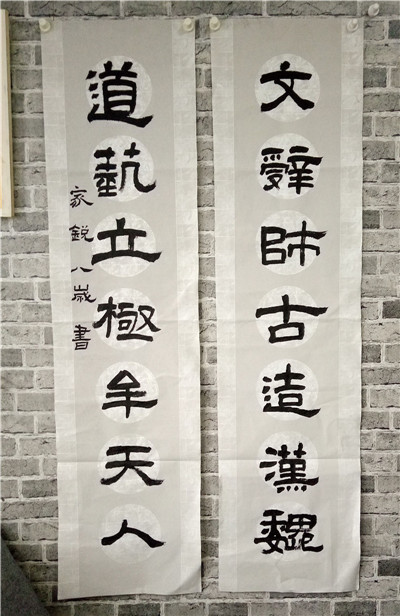 文辭師古造漢魏
道蓺立極牟天人
家銳八歲書